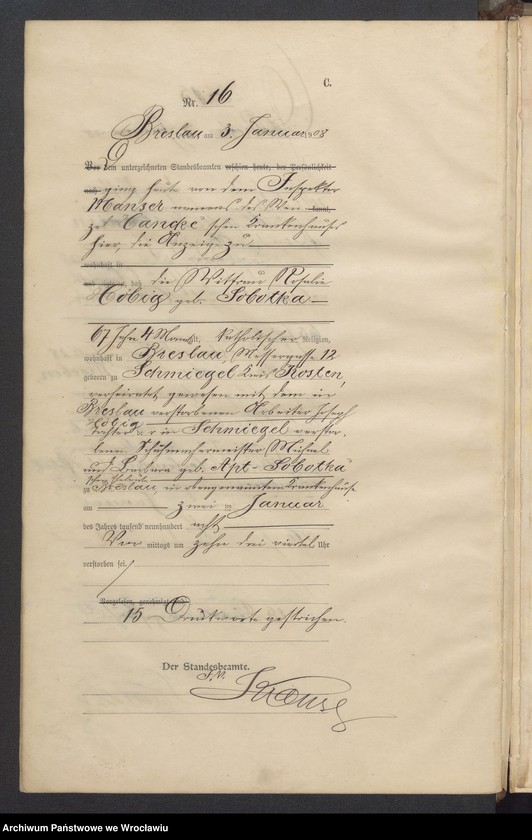 C.
Nr. 16
Breslau am 3. Januar 1908
Vor dem unterzeichneten Standesbeamten erschien heute, der Persönlichkeit
nach ging heute von dem Inspektor
Manser namens des Wen- kannt,
zel Hancke'schen Krankenhauses
hier, die Anzeige zu
wohnhaft in
daß die Wittfrau Rosalie
geb. Sobotka
67 Jahr 4 Monat alt, katholischer Religion,
wohnhaft in Breslau, Messergasse 12
geboren zu Schmiegel Kreis Kosten,
verheiratet gewesen mit dem in
Breslau verstorbenen Arbeiter Joseph
Tochter der in Schmiegel verstor-
benen Schuhmachermeister Michael
und Barbara geb. Apt- Sobotka
zu Breslau, in obengenanntem Krankenhause
am zwei ten Januar
des Jahres tausend neunhundert acht
Vor mittags um zehn drei viertel Uhr
verstorben sei.
Vorgelesen, genehmigt und
15 Druckworte gestrichen.
Der Standesbeamte.
J. V.